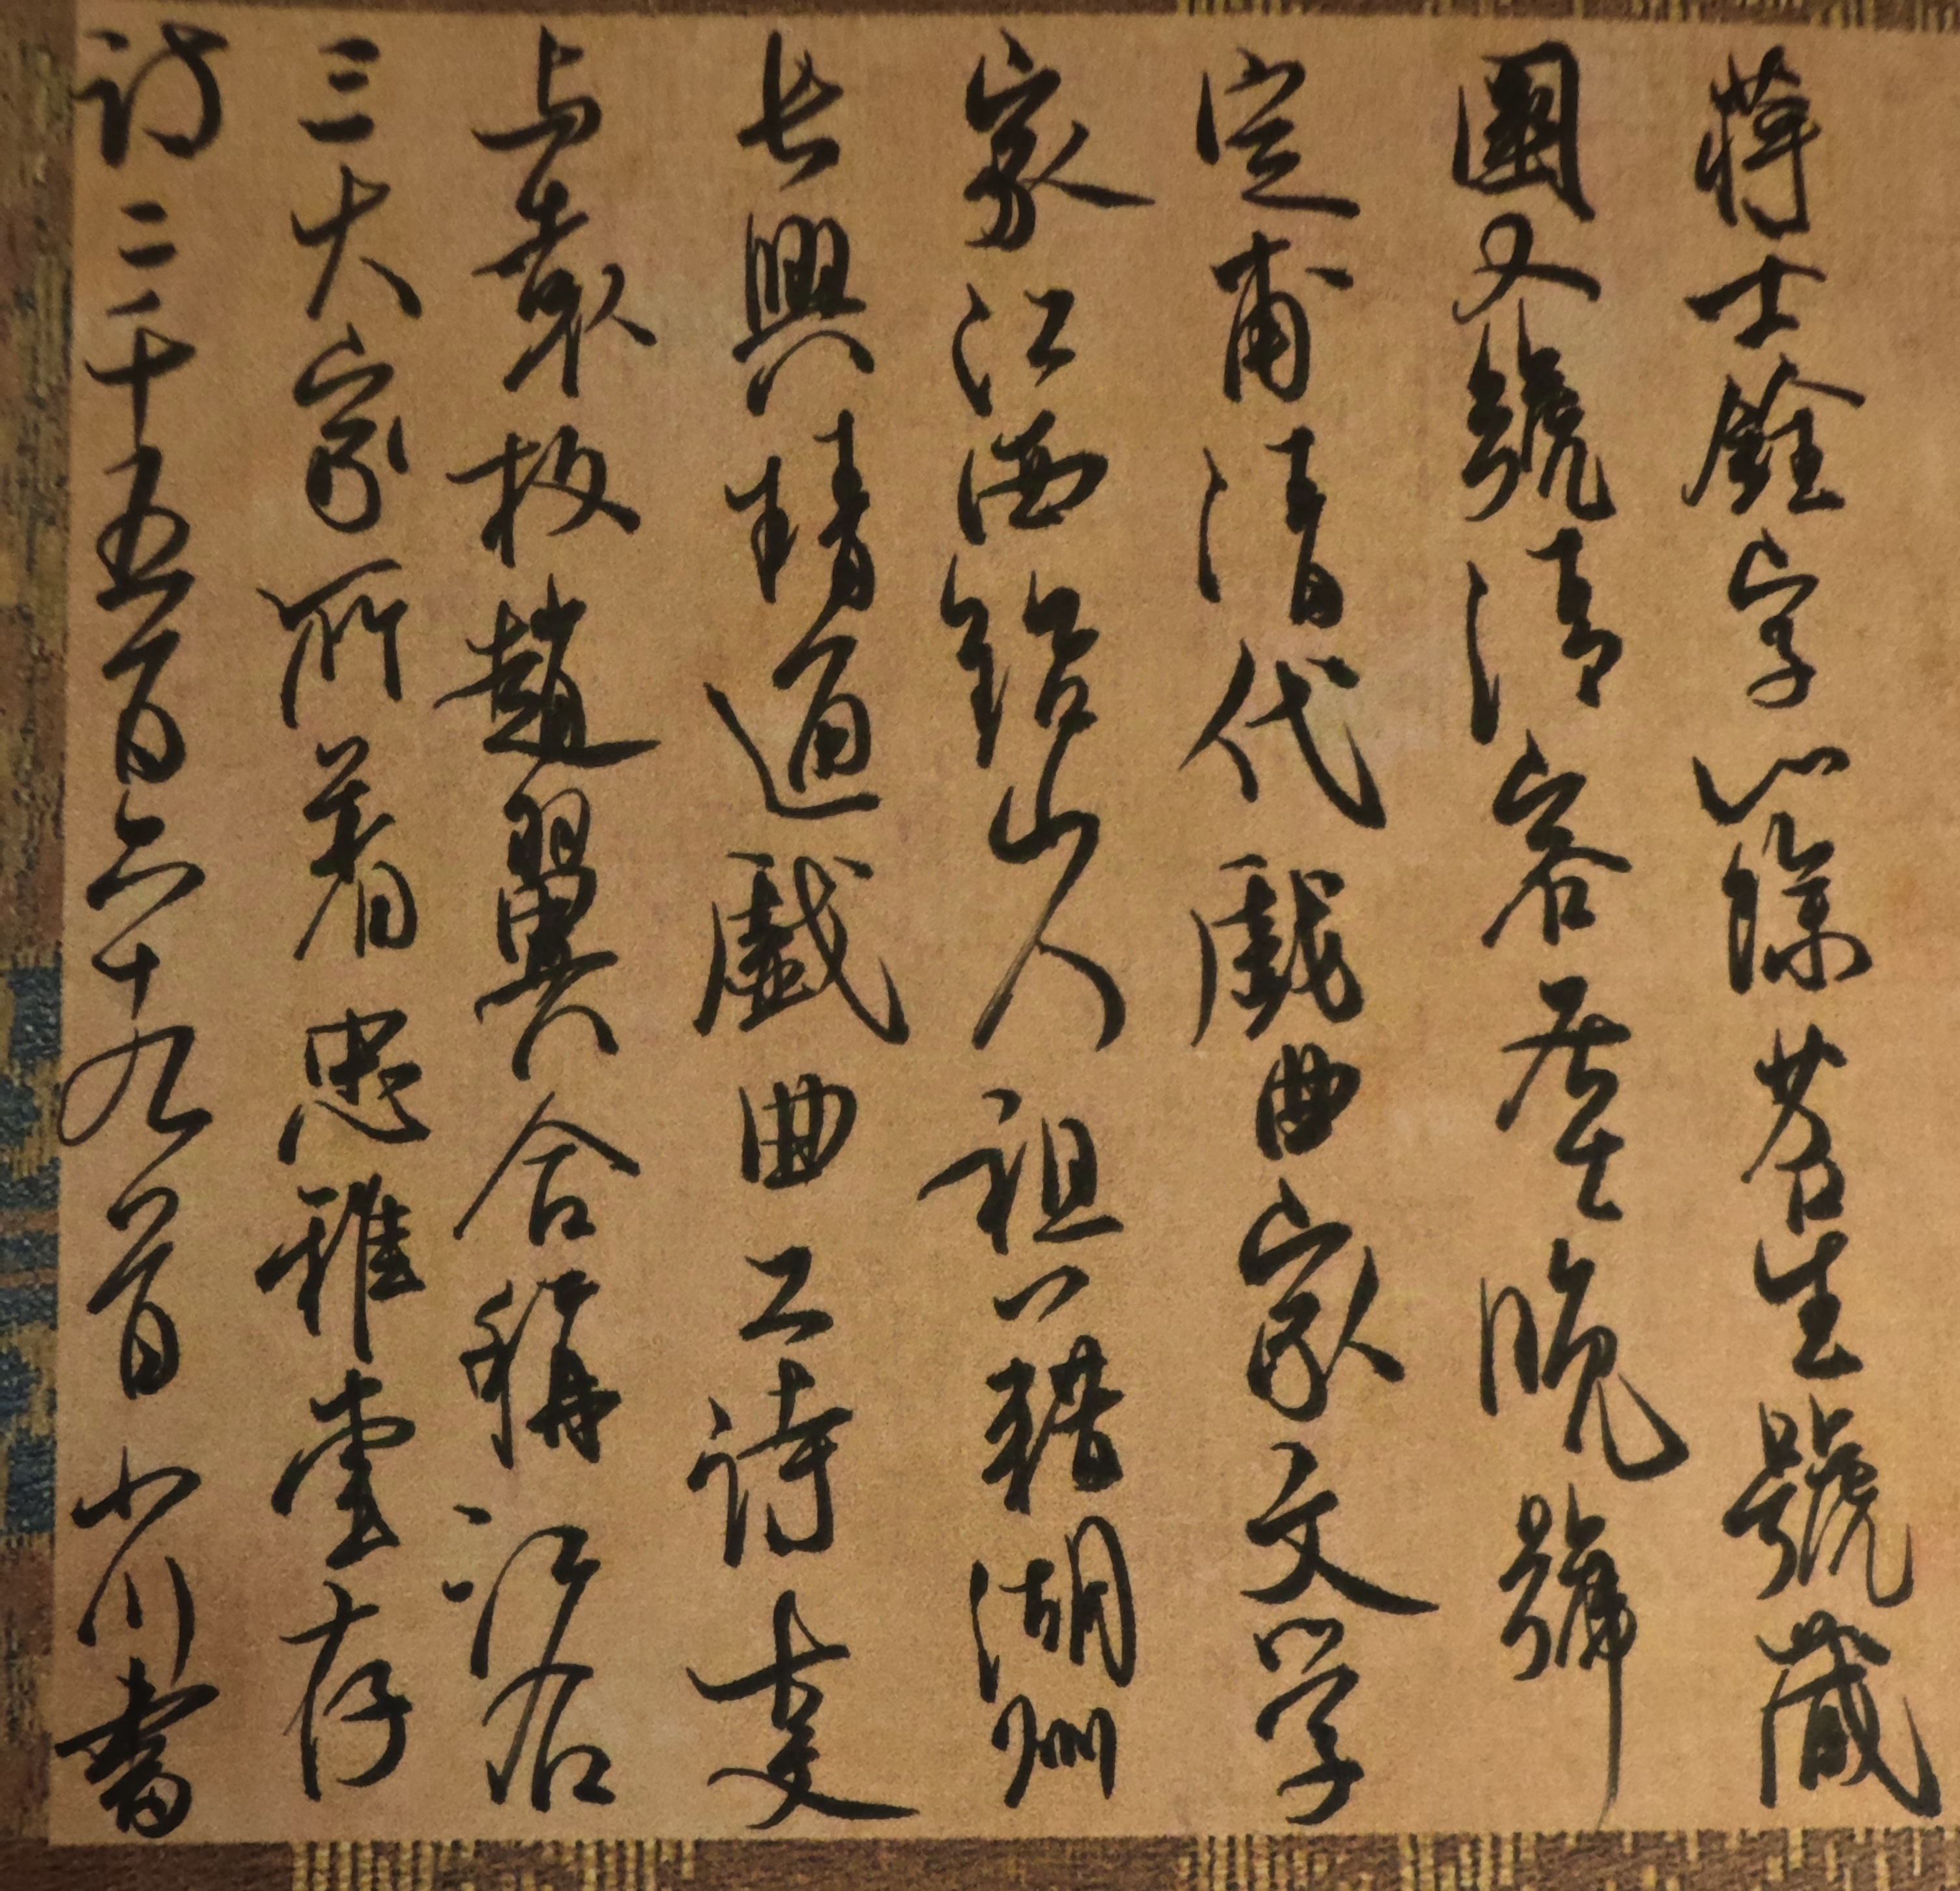 蔣士銓字心餘苕生號藏
園又號清容居士晚號
定甫清代戲曲家文学
家江西鉛山人祖籍湖州
長興精通戲曲工詩
与袁枚趙翼合稱江右
三大家所著忠雅堂存
詩二千五百六十九首小川書